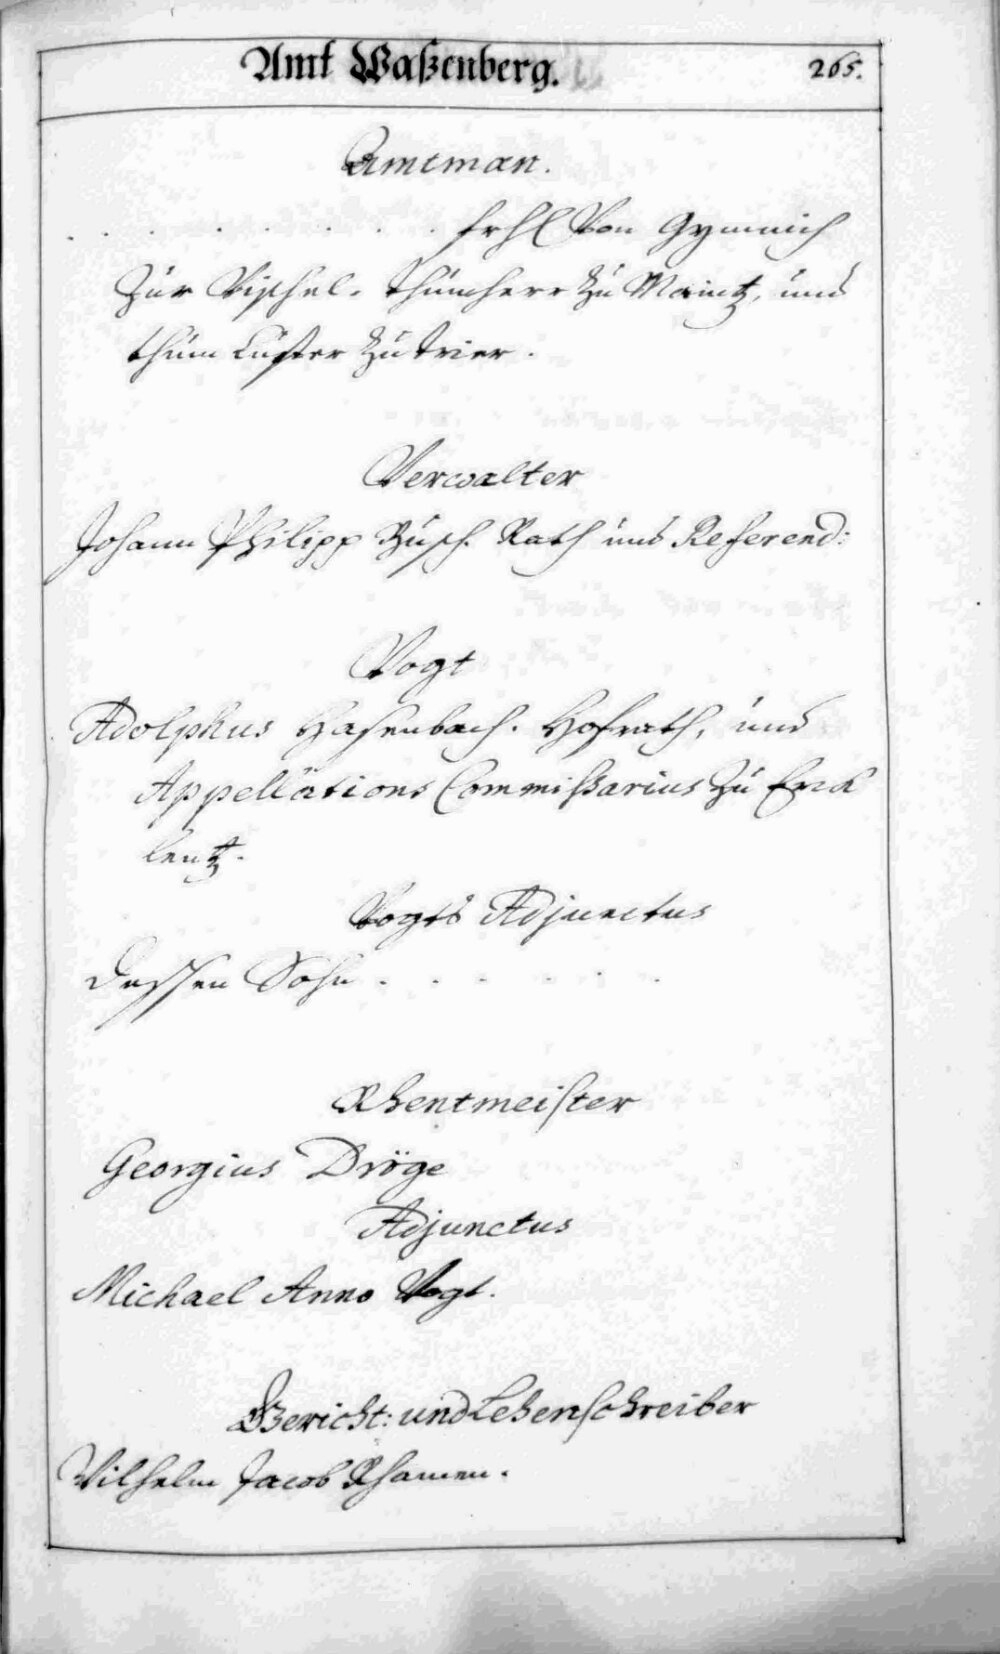 Amt Waßenberg.
265.
Amtman.
. . . . . . . . frhl Von Gymnich
Zur Vischel. thumherr zu Maintz, und
thum Cüster zu trier.
Verwalter
Johann Philipp Busch. Rath und Referend:
Vogt
Adolphus Hasenbach. Hofrath, und
Appellations Commißarius zu Erck
lentz.
Vogts Adjunctus
dessen Sohn . . . . . .
Rhentmeister
Georgius Dröge
Adjunctus
Michael Anno Vogt.
Gericht: und Lehenschreiber
Wilhelm Jacob Rhamen.